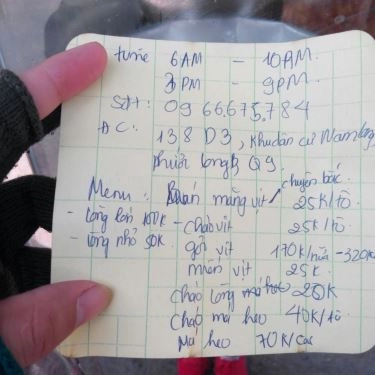 time 6AM - 10AM
3PM - 9PM
SĐT: 09 66.675.784
ĐC: 138 D3, khu dân cư Nam Long
phước long B, Q9
chuyên bắc
Menu: Bún măng vịt 25K/tô
- lòng lớn 100K - cháo vịt 25K/tô
- lòng nhỏ 50K gỏi vịt 170K/nửa - 320K
miến vịt 25K
cháo lòng 20K
cháo má heo 40K/tô
Má heo 70K/cái